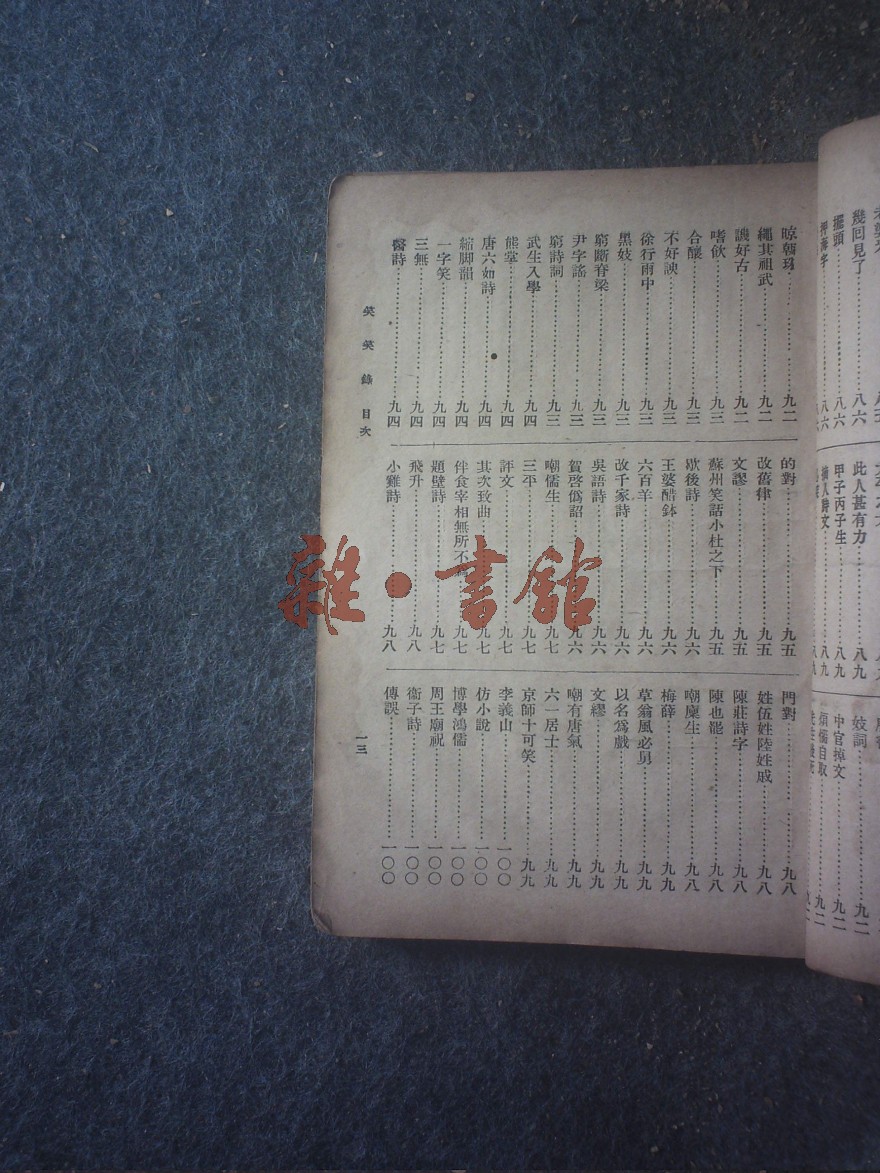 幾回見了……八六
擺頭……八六
八六
此人甚有力……八九
甲子丙子生……八九
摘人詩文……八九
妓詞……九二
中官掉文……九二
煩惱自取……九二
晾朝珠……九二
繩其祖武……九二
譏好古……九二
嗜飲……九三
合釀……九三
不好諛……九三
徐行雨中……九三
黑妓……九三
窮斷脊梁……九三
尹字謠……九三
窮詩詞……九三
武生入學……九四
熊掌……九四
唐六如詩……九四
縮脚韻……九四
一字笑……九四
三無……九四
醫詩……九四
的對……九五
改舊律……九五
文謬……九五
蘇州笑話小杜之下……九五
歇後詩……九六
王婆醋鉢……九六
六百羊……九六
改千家詩……九六
吳語詩……九六
賀啓僞詔……九六
嘲儒生……九七
三平……九七
評文……九七
其次致曲……九七
伴食宰相無所不……九七
題壁詩……九七
飛升……九八
小雞詩……九八
門對……九八
姓伍姓陸姓戚……九八
陳莊詩字……九八
陳也罷……九八
嘲廩生……九八
梅薛……九九
草翁風必舅……九九
以名爲戲……九九
文繆……九九
嘲有唐氣……九九
六一居士……九九
京師十可笑……九九
李義山……一〇〇
仿小說……一〇〇
博學鴻儒……一〇〇
周王廟祝……一〇〇
衞子詩……一〇〇
傳誤……一〇〇
笑笑錄 目次
一三
雜·書館